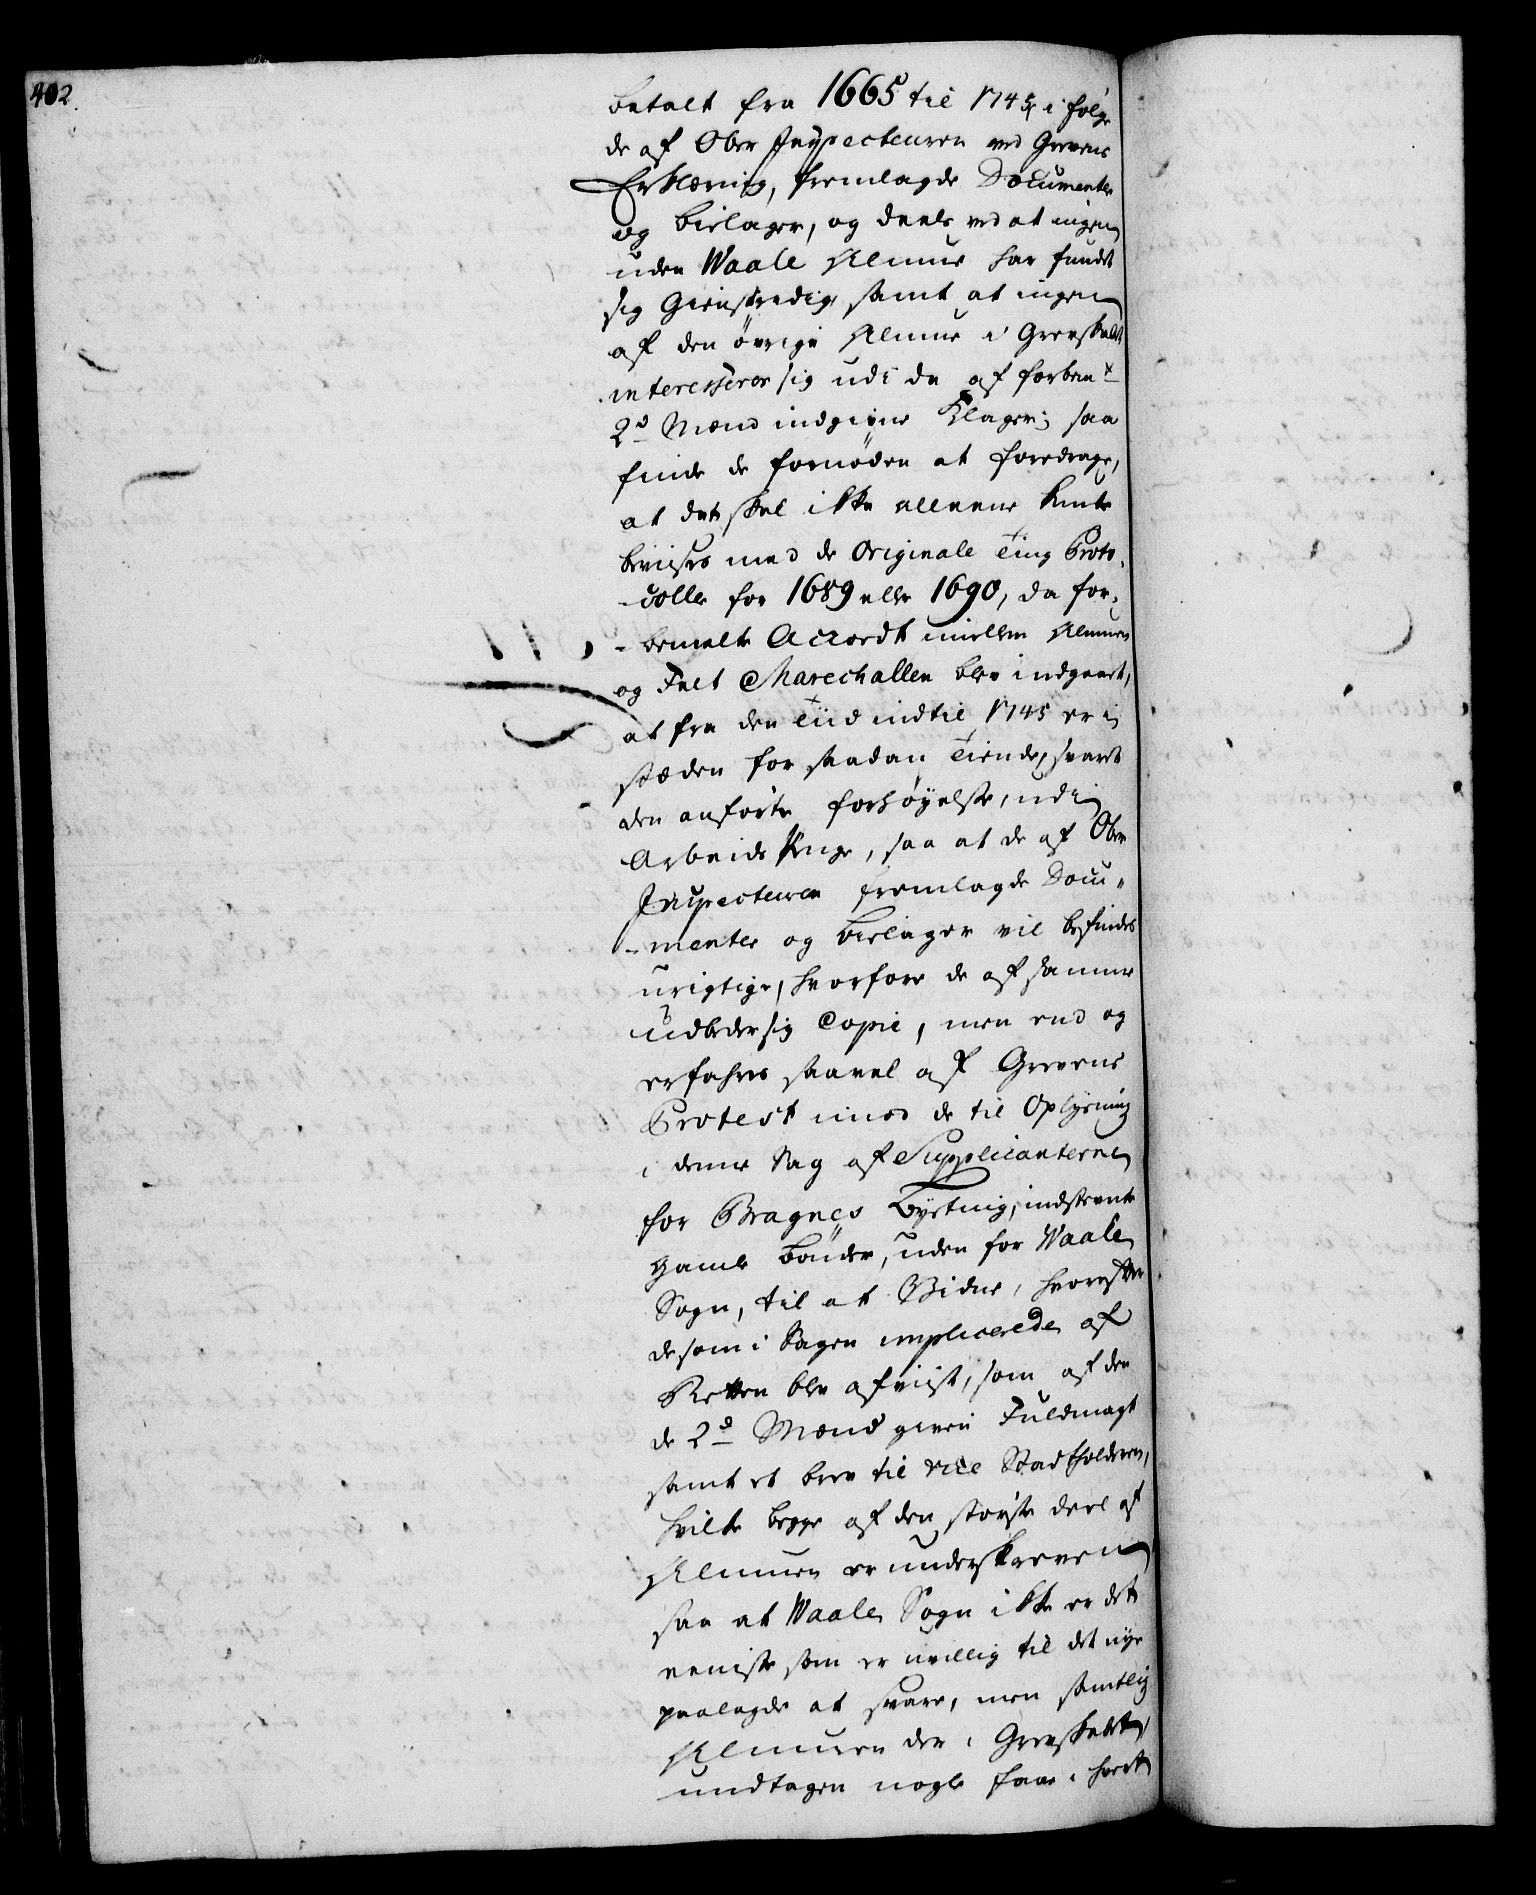 402.
betalt fra 1665 til 1745, i følge
de af Ober Inspecteuren ved Grevens
Erklæring, fremlagde Documenter
og bielager, og deels ved at ingen
uden Waale Almue har fundet
sig Gienstridig, samt at ingen
af den øvrige Almue i Grevskabet
interesserer sig udi de af forben.te
2de Mænd indgivne Klager; saa
finde de fornøden at foredrage,
at det skal ikke alleene kunde
bevises med de Originale Ting Proto-
-coller for 1689 eller 1690, da for-
-bemelte Accordt imellem Almuen
og Felt Marechallen blev indgaaet,
at fra den Tiid indtil 1745 er i
stæden for saadan Tiende, svaret
den anførte forhøyelse, udi
Arbeids Penge, saa at de af Ober
Inspecteuren fremlagde Docu-
-menter og bielager vil befindes
urigtige, hvorfore de af samme
udbeder sig Copie, men end og
erfahres saavel af Grevens
Protest imod de til Oplysning
i denne Sag af Supplicanterne
for Bragnes Byeting, indstevnte
gamle bønder, uden for Waale
Sogn, til at Vidne, hvorefter
de som i Sagen implicerede af
Retten blev afviist, som af den
de 2de Mænd given Fuldmagt
samt et brev til vice Stadtholderen,
hvilke begge af den største deel af
Almuen er underskreven
saa at Waale Sogn ikke er det
eeniste som er uvillig til det nye
paalagde at svare, men samtlig
Almuen der i Grevskabet,
undtagen nogle faae i hvert